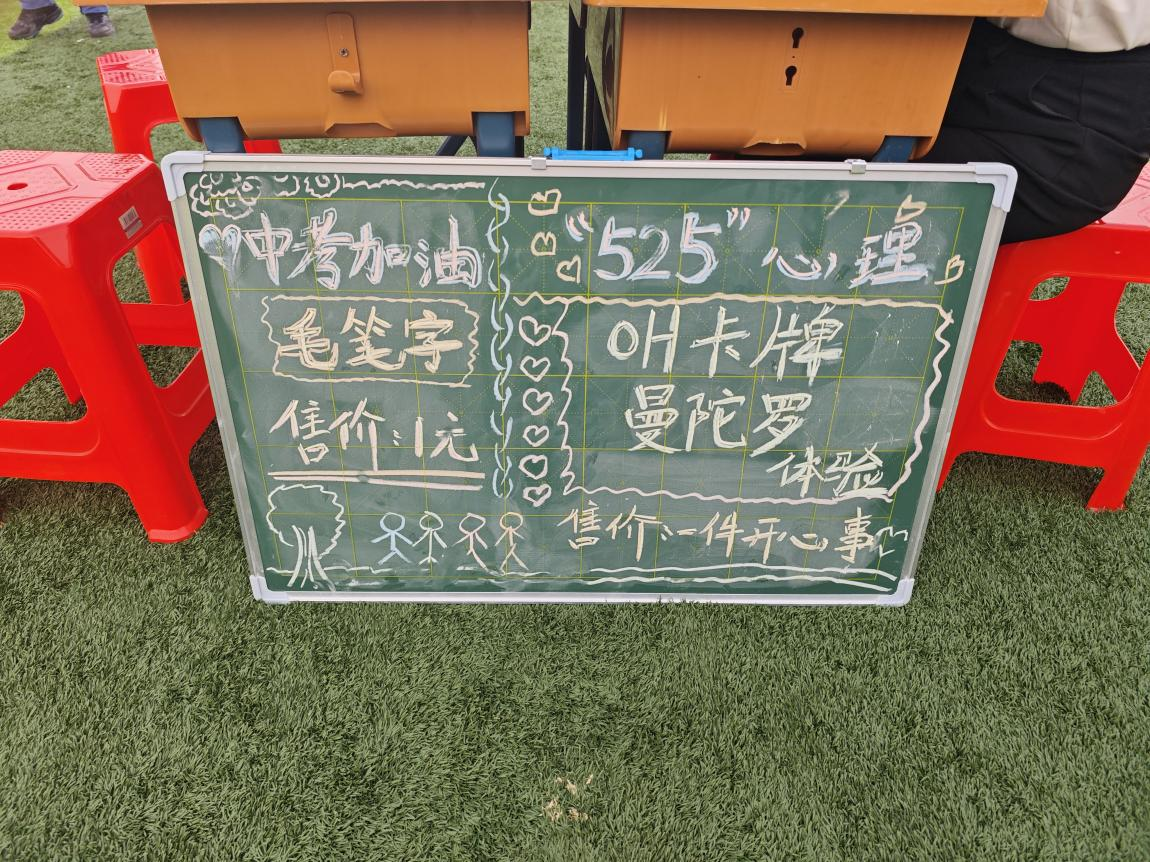 中考加油
毛笔字
售价:1元
“525”心理
OH卡牌
曼陀罗
体验
售价:一件开心事